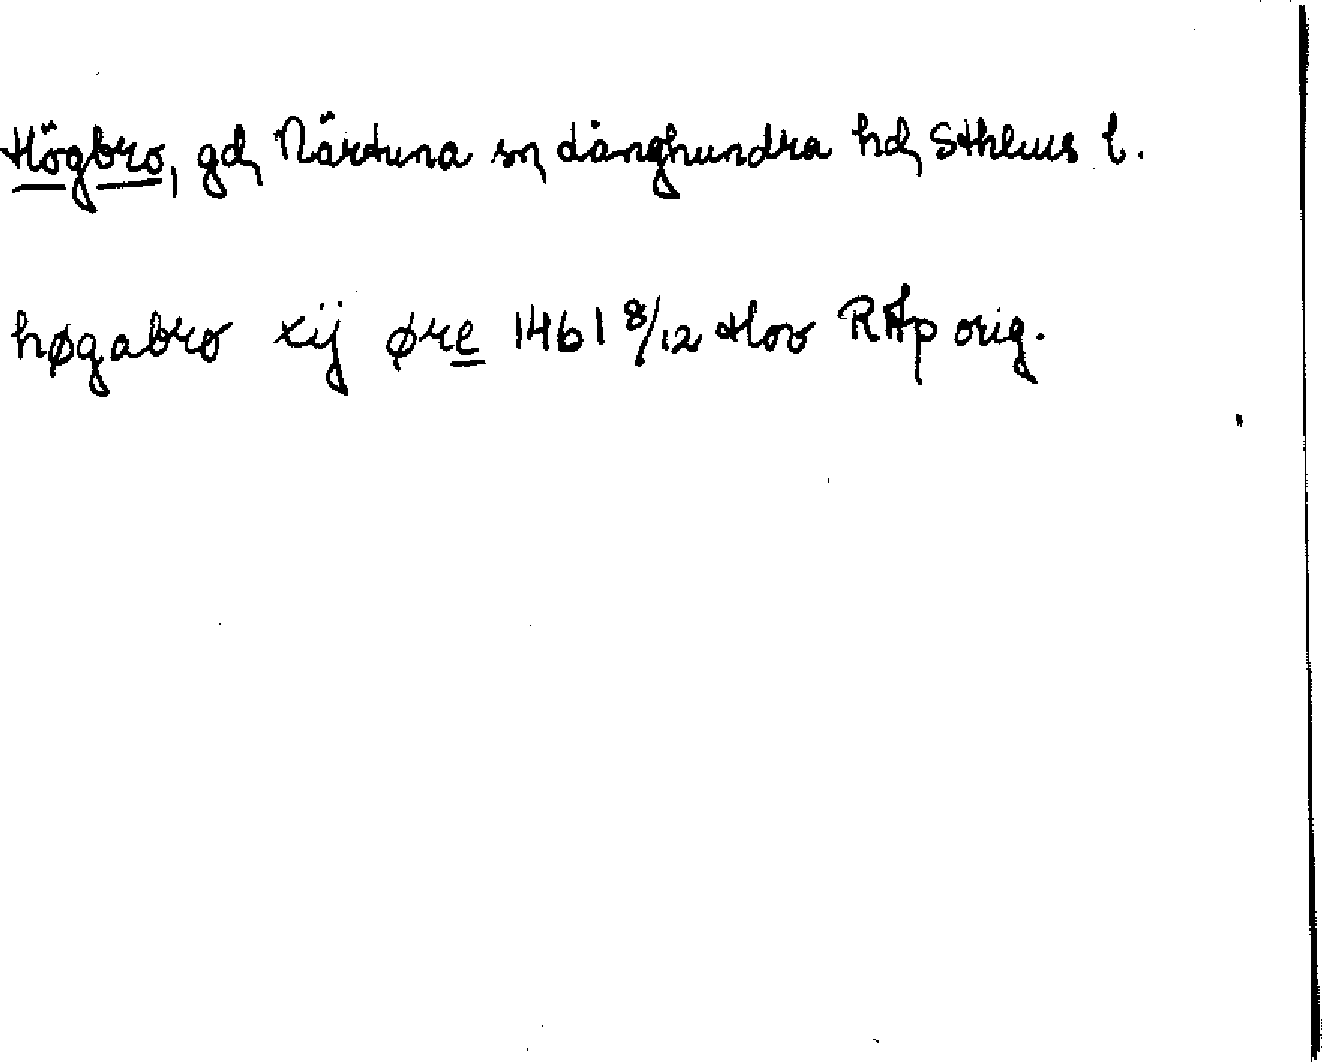 Högbro, gd, Närtuna sn, Långhundra hd, Sthlms l.
høgabro xij øre 1461 8/12 Hov RAp orig.